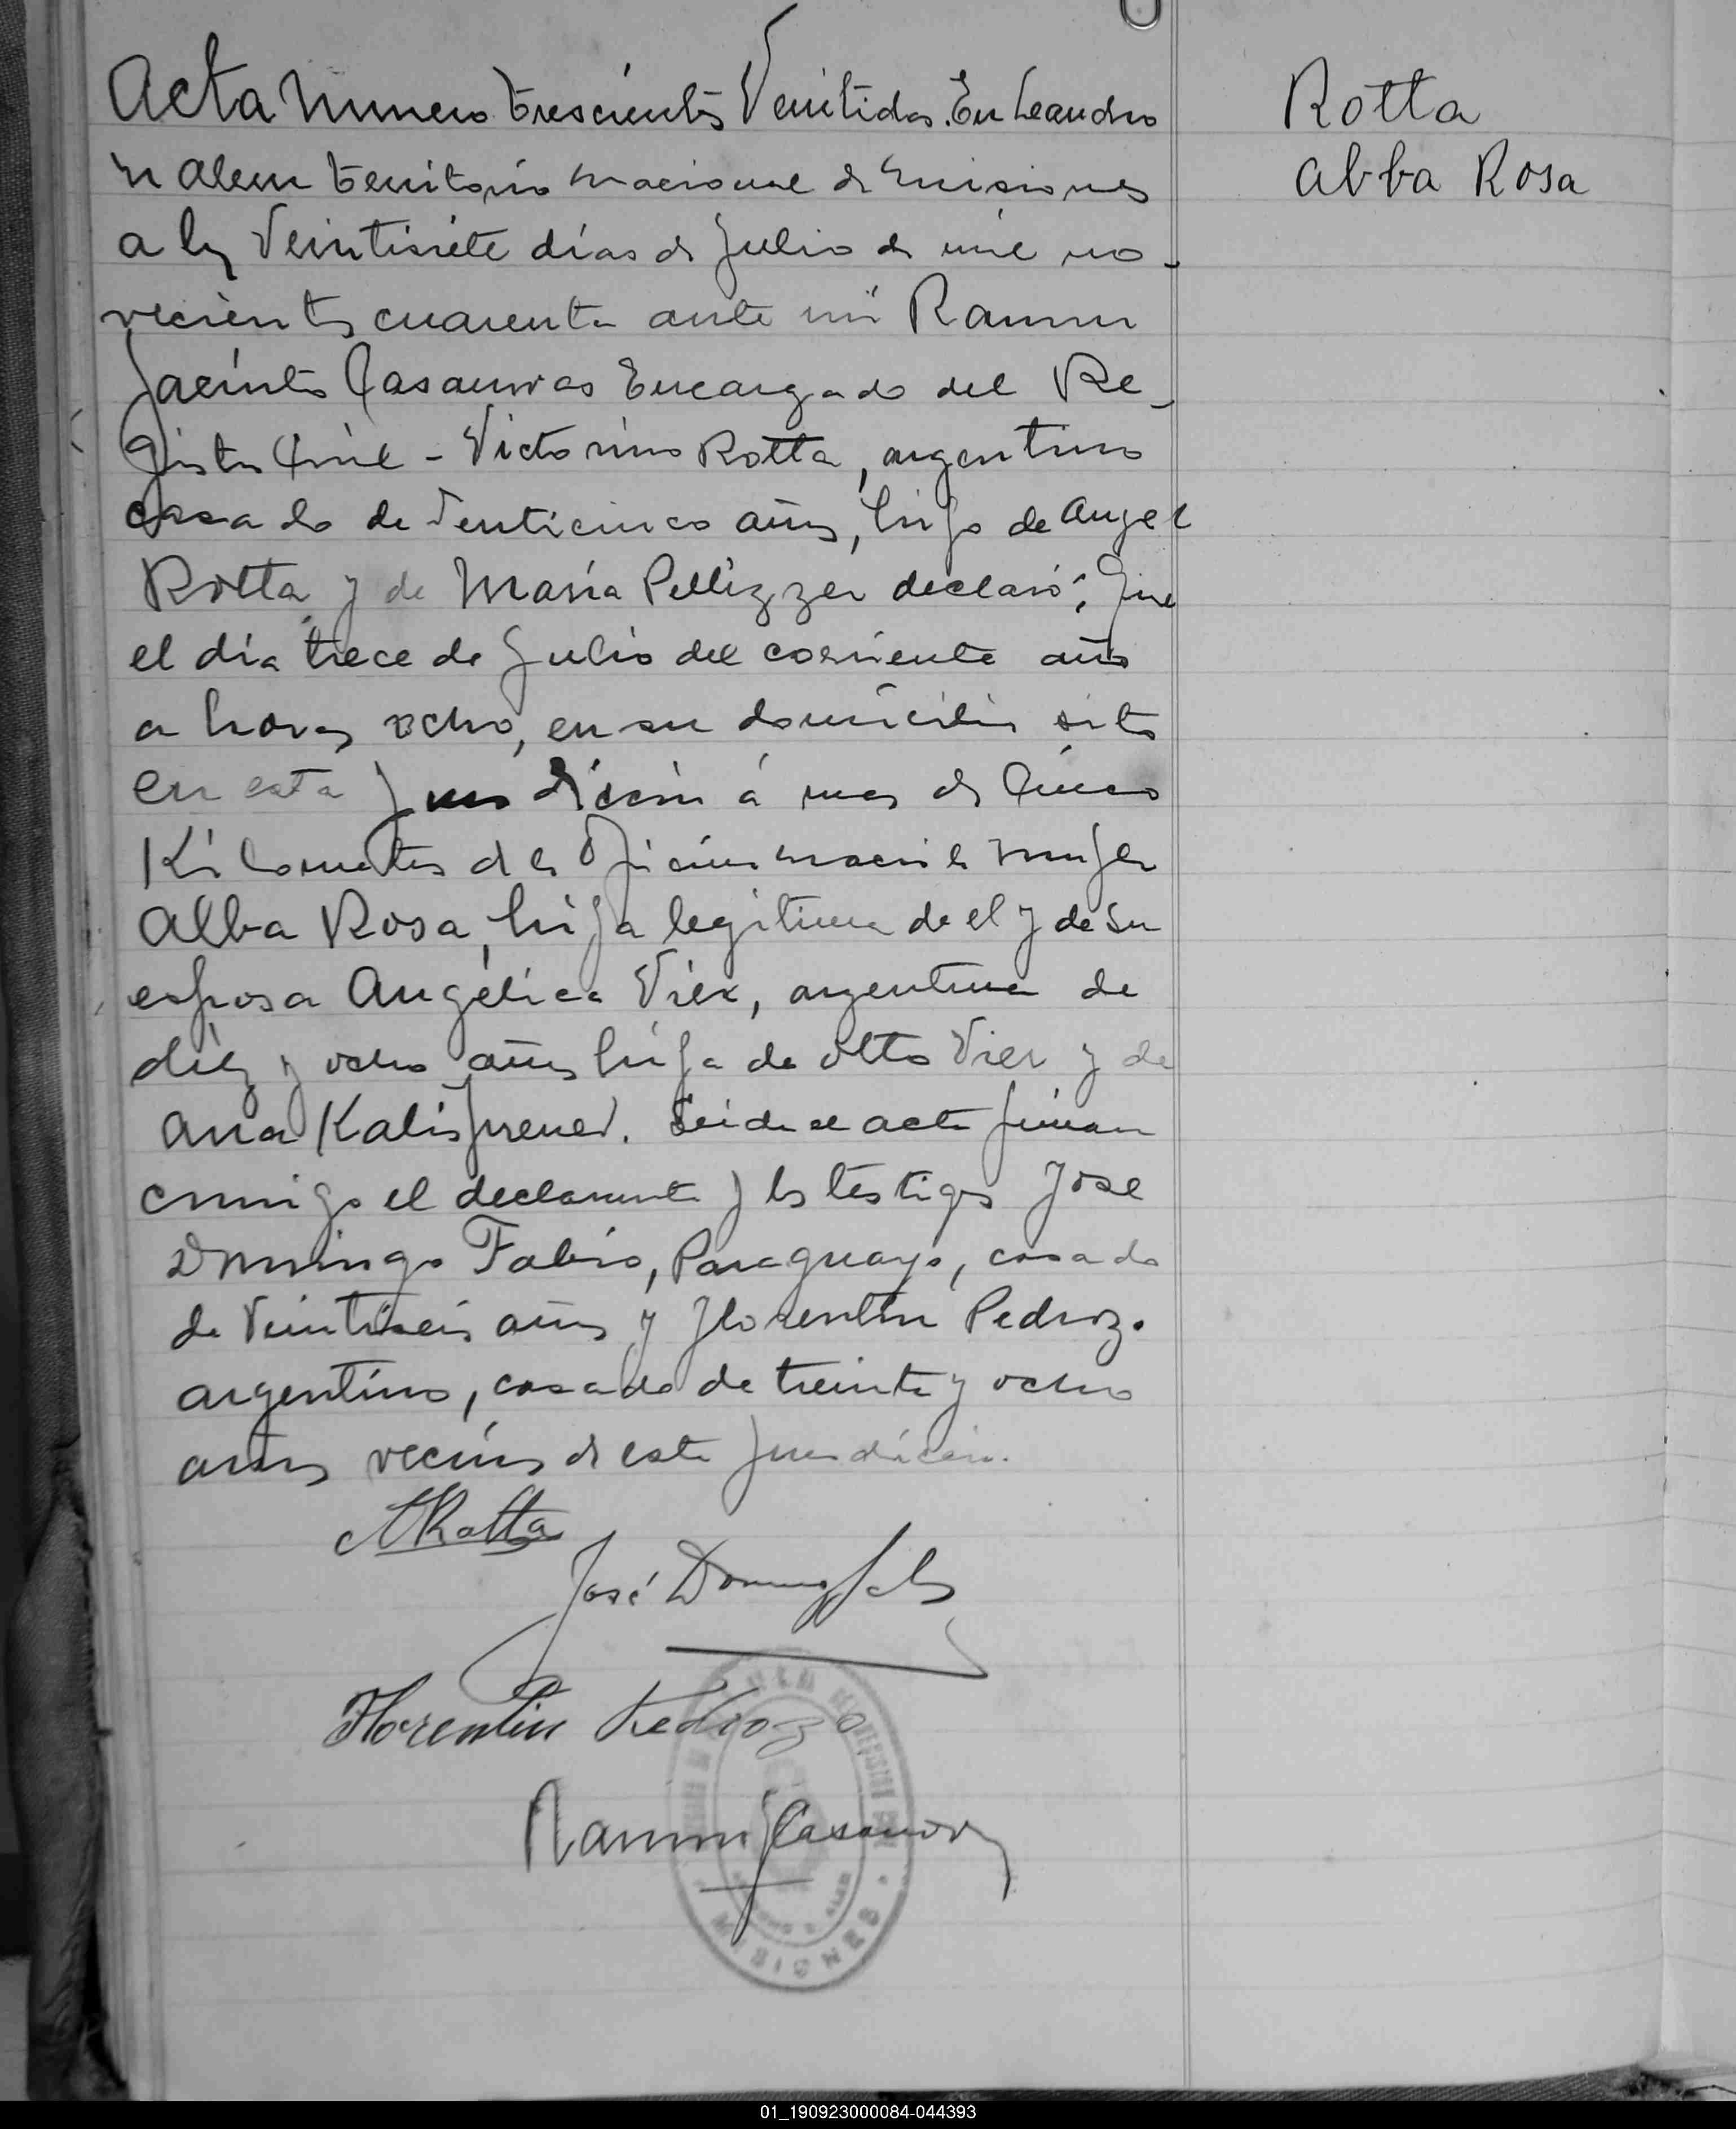 Acta Numero trescientos Venitidos. En Leandro
N Alem territorio nacional de Misiones
a los Veintisiete días de Julio de mil no-
vecientos cuarenta ante mi Ramon
Jacinto Casanovas Encargado del Re-
gistro Civil - Victorino Rotta, argentino
casado de Venticinco años, hijo de Angel
Rotta y de María Pellizzer declaró; Que
el día trece de Julio del corriente año
a horas ocho, en su domicilio sito
en esta jurisdicción á mas de Cinco
Kilometros de la Oficina nació la mujer
Alba Rosa, hija legitima de el y de su
esposa Angélica Vier, argentina de
diez y ocho años hija de Otto Vier y de
Ana. Leida el acta firman
conmigo el declarante y los testigos Jose
Domingo Fabio, Paraguayo, casado
de Veintiseis años y Florentin Pedrozo
argentino, casado de treinta y ocho
años vecinos de esta jurisdicción.
Rotta
José Domingo
Florentin Pedrozo
Ramon J Casanovas
MISIONES
Rotta
Abba Rosa
01_190923000084-044393